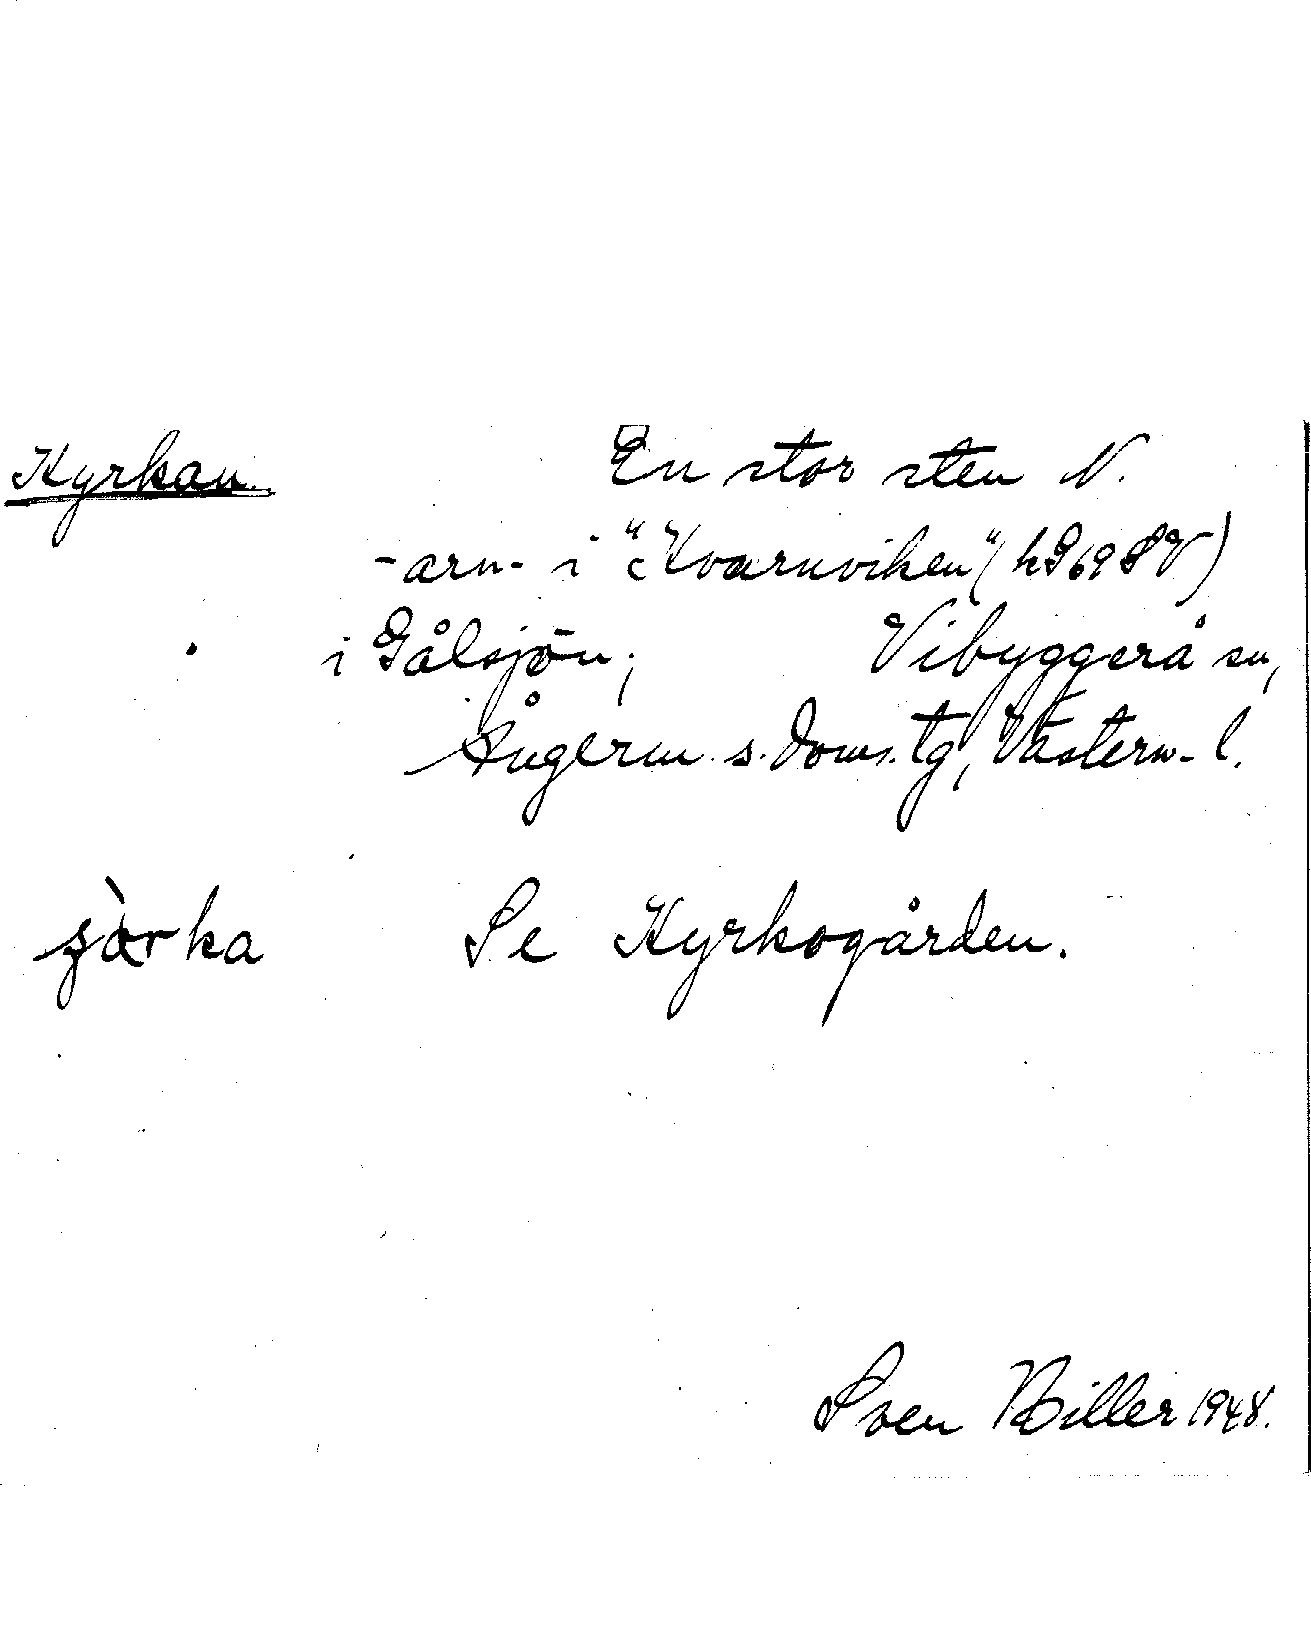 Kyrkan. En stor sten N.
-arn- i "Kvarnviken" (h969SV)
i Gålsjön, Vibyggerå sn,
Ångerm. s. doms. tg, Västern- l.
Se Kyrkogården.
Sven Biller 1948.